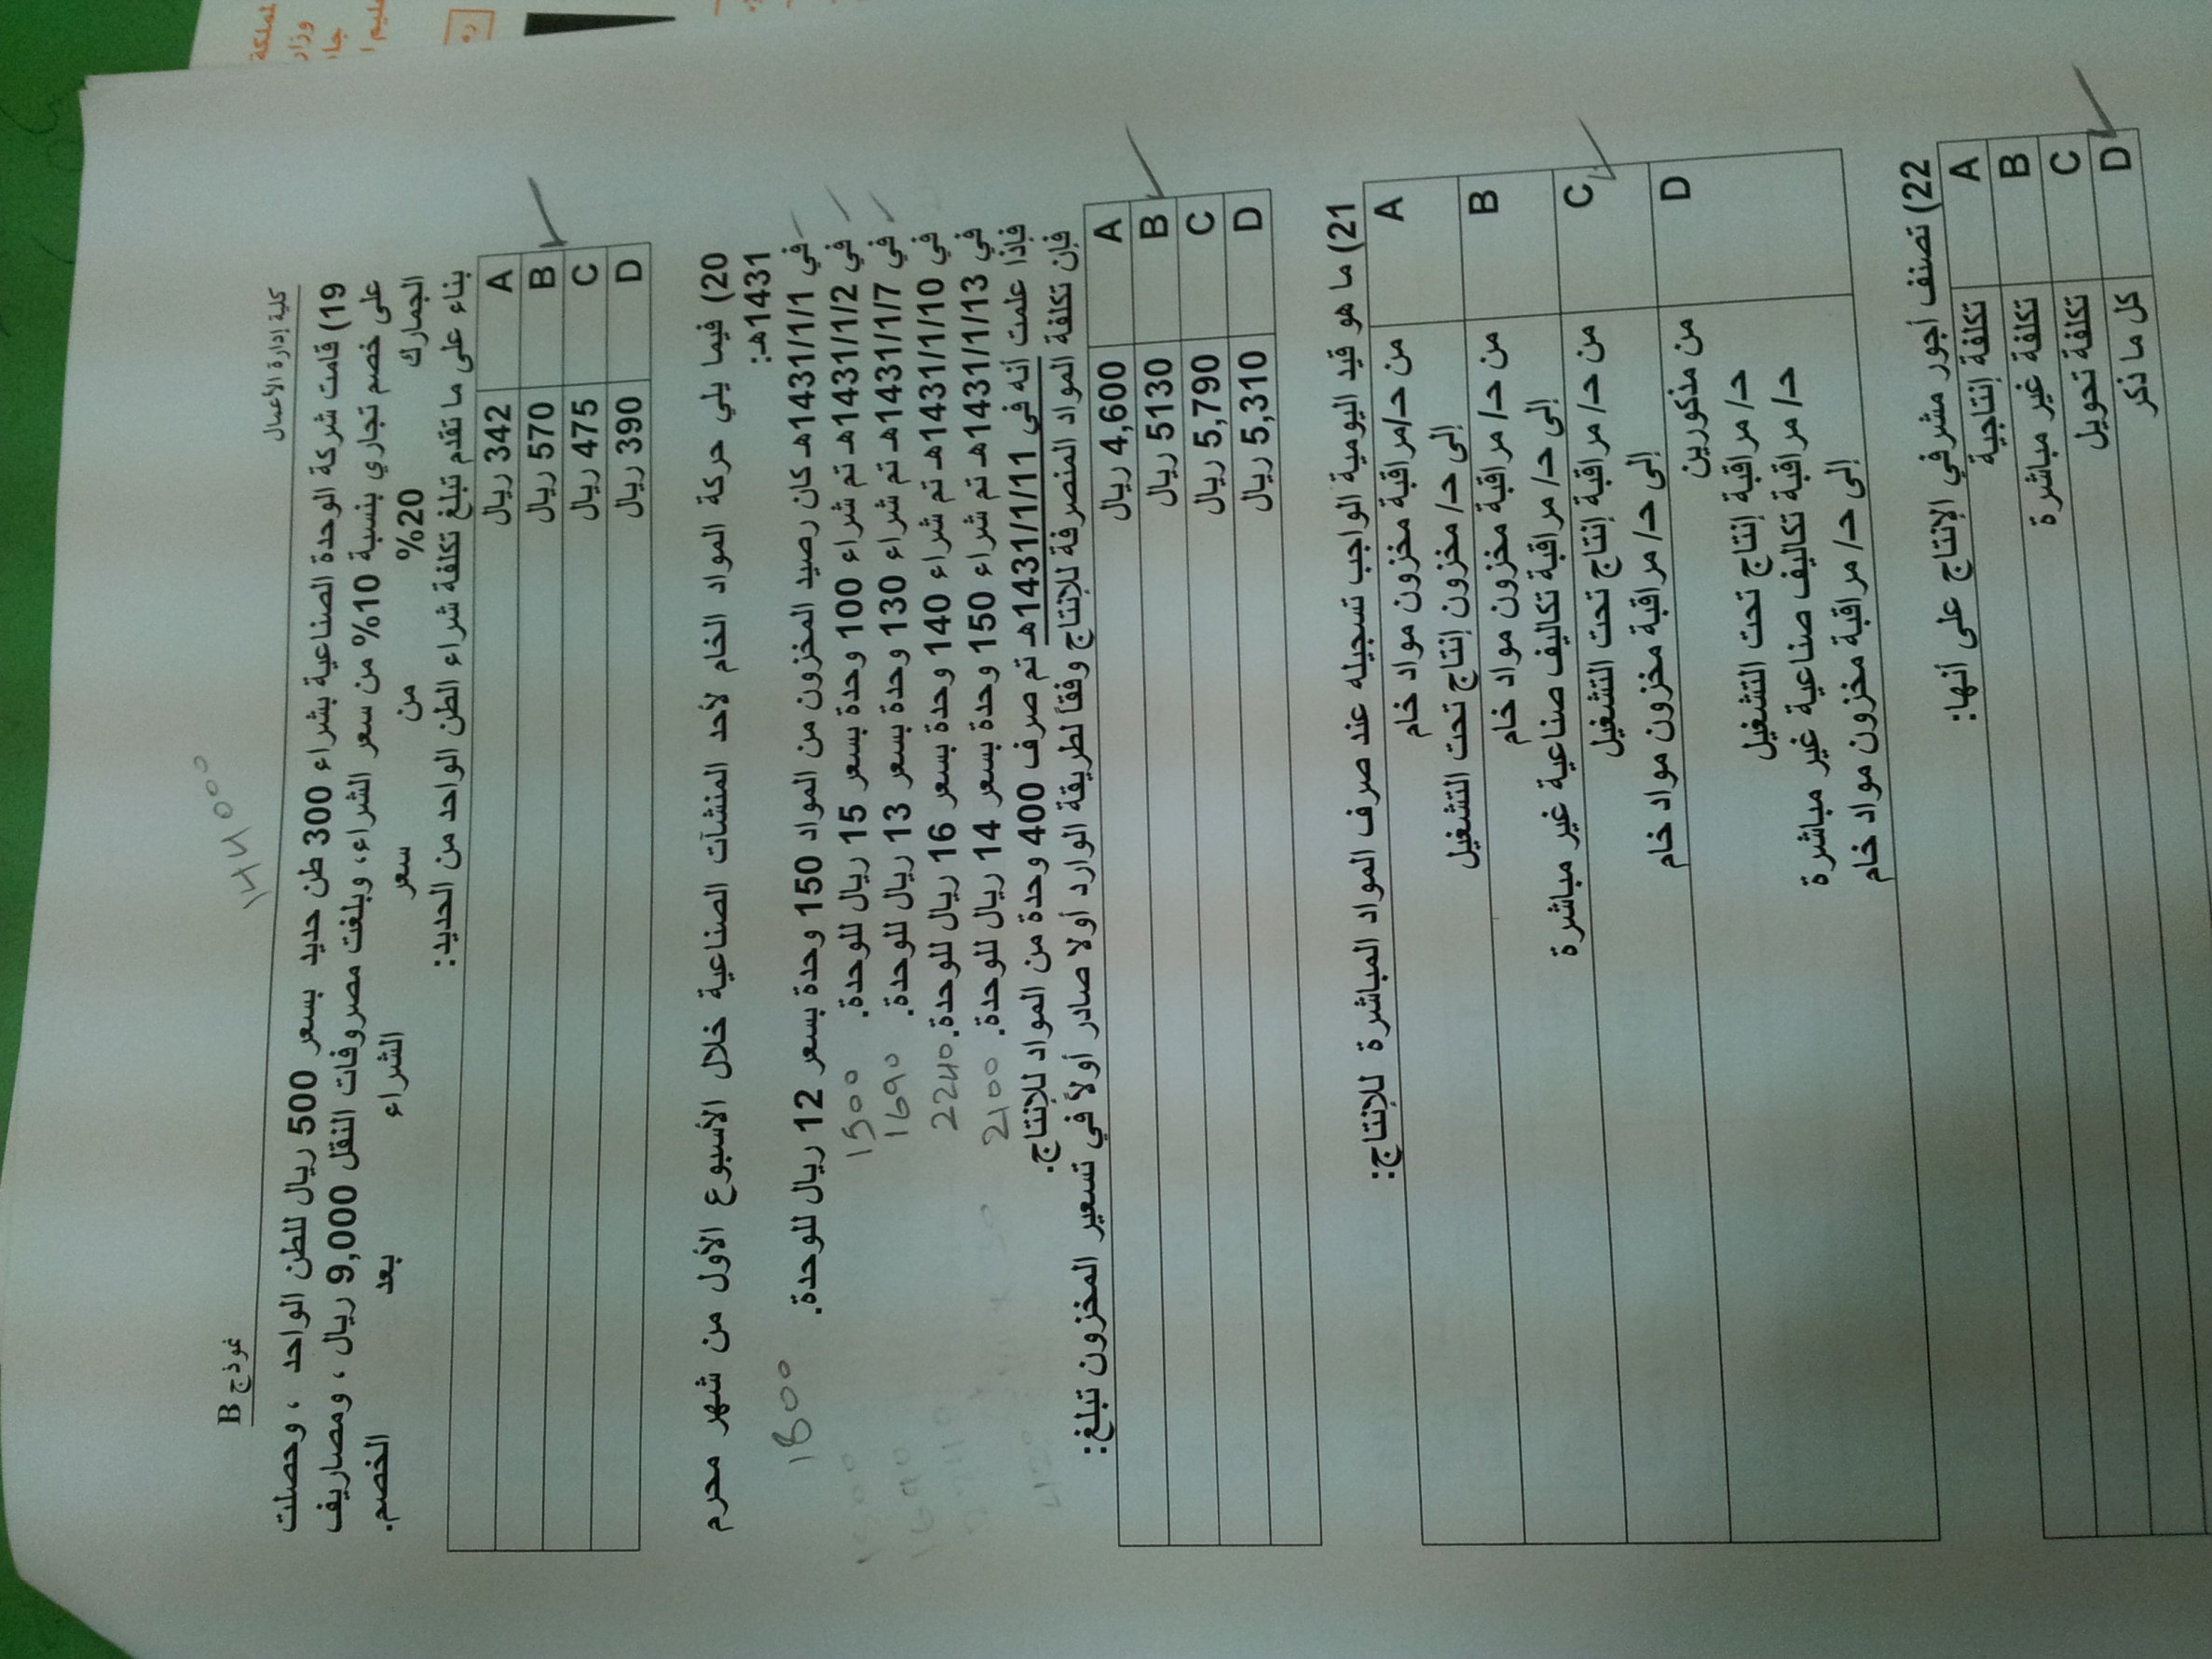 نموذج B
كلية إدارة الأعمال
14400
19) قامت شركة الوحدة الصناعية بشراء 300 طن حديد بسعر 500 ريال للطن الواحد ، وحصلت
على خصم تجاري بنسبة 10% من سعر الشراء، وبلغت مصروفات النقل 9,000 ريال ، ومصاريف
الجمارك 20% من سعر الشراء بعد الخصم.
بناء على ما تقدم تبلغ تكلفة شراء الطن الواحد من الحديد:
A 342 ريال
B 570 ريال
C 475 ريال
D 390 ريال
20) فيما يلي حركة المواد الخام لأحد المنشآت الصناعية خلال الأسبوع الأول من شهر محرم
1431هـ:
في 1431/1/1هـ كان رصيد المخزون من المواد 150 وحدة بسعر 12 ريال للوحدة. 1800
في 1431/1/2هـ تم شراء 100 وحدة بسعر 15 ريال للوحدة. 1500
في 1431/1/7هـ تم شراء 130 وحدة بسعر 13 ريال للوحدة. 1690
في 1431/1/10هـ تم شراء 140 وحدة بسعر 16 ريال للوحدة. 2240
في 1431/1/13هـ تم شراء 150 وحدة بسعر 14 ريال للوحدة. 2100
فإذا علمت أنه في 1431/1/11هـ تم صرف 400 وحدة من المواد للإنتاج.
فإن تكلفة المواد المنصرفة للإنتاج وفقاً لطريقة الوارد أولا صادر أولاً في تسعير المخزون تبلغ:
A 4,600 ريال
B 5130 ريال
C 5,790 ريال
D 5,310 ريال
21) ما هو قيد اليومية الواجب تسجيله عند صرف المواد المباشرة للإنتاج:
A من حـ/مراقبة مخزون مواد خام
إلى حـ/ مخزون إنتاج تحت التشغيل
B من حـ/ مراقبة مخزون مواد خام
إلى حـ/ مراقبة تكاليف صناعية غير مباشرة
C من حـ/ مراقبة إنتاج تحت التشغيل
إلى حـ/ مراقبة مخزون مواد خام
D من مذكورين
حـ/ مراقبة إنتاج تحت التشغيل
حـ/ مراقبة تكاليف صناعية غير مباشرة
إلى حـ/ مراقبة مخزون مواد خام
22) تصنف أجور مشرفي الإنتاج على أنها:
A تكلفة إنتاجية
B تكلفة غير مباشرة
C تكلفة تحويل
D كل ما ذكر